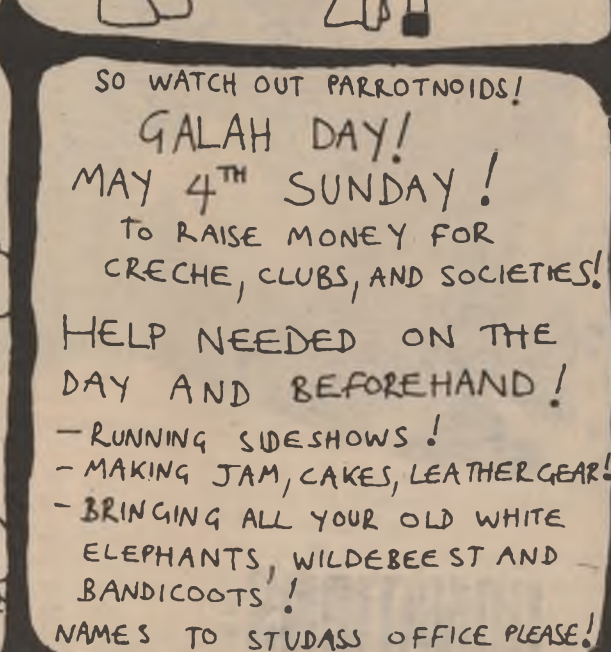 SO WATCH OUT PARROTNOIDS!
GALAH DAY!
MAY 4TH SUNDAY!
TO RAISE MONEY FOR
CRECHE, CLUBS, AND SOCIETIES!
HELP NEEDED ON THE
DAY AND BEFOREHAND!
- RUNNING SIDESHOWS!
- MAKING JAM, CAKES, LEATHER GEAR!
- BRINGING ALL YOUR OLD WHITE
ELEPHANTS, WILDEBEEST AND
BANDICOOTS'!
NAMES TO STUDASS OFFICE PLEASE!